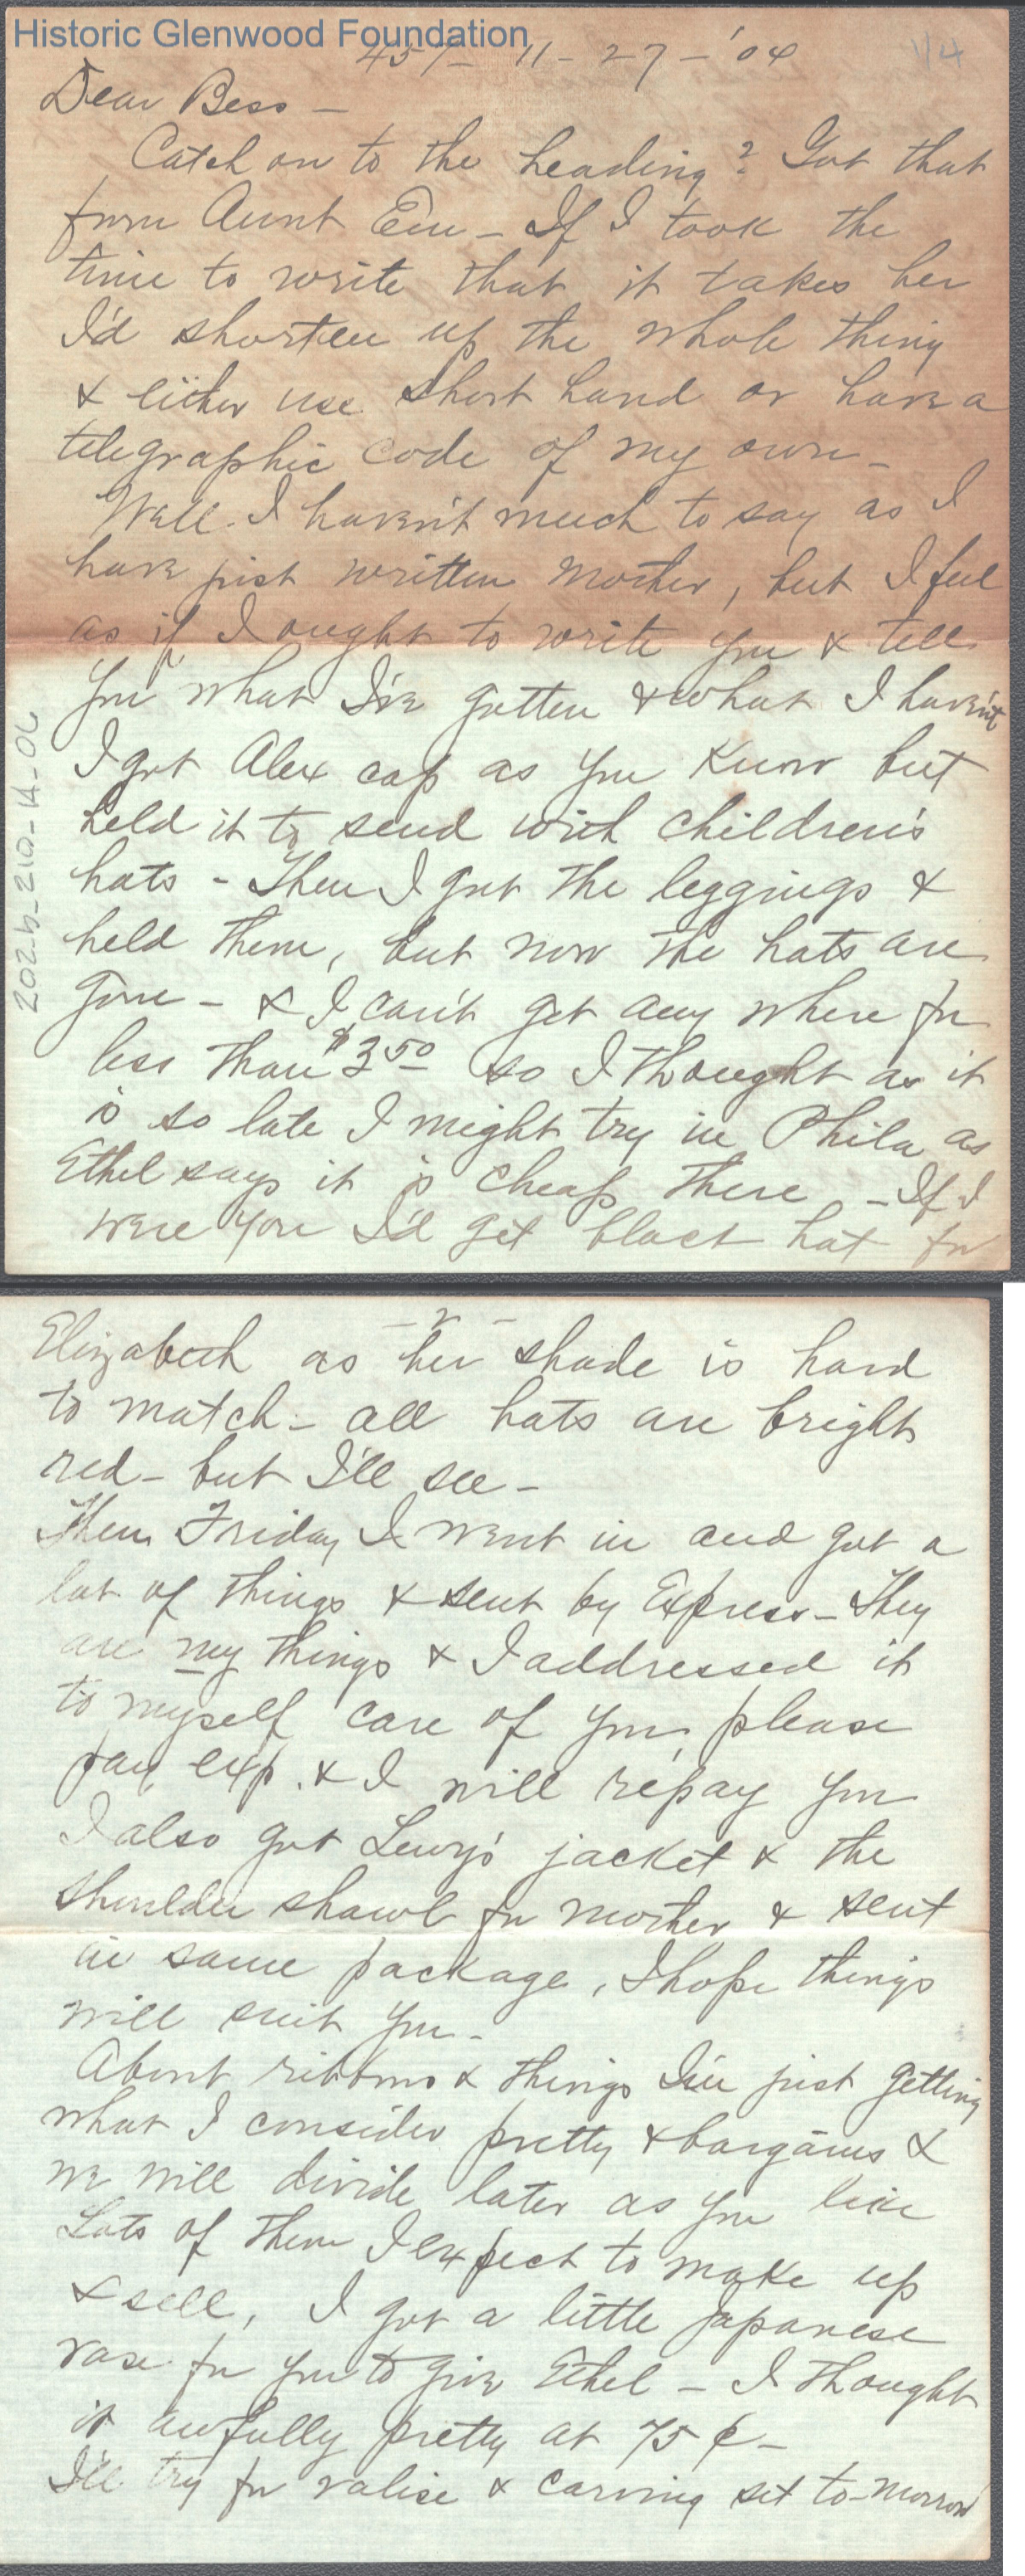 Historic Glenwood Foundation
457 - 11 - 27 - '04
1/4
Dear Bess -
Catch on to the heading? Got that
from Aunt Em - If I took the
time to write that it takes her
I'd shorten up the whole thing
& either use short hand or have a
telegraphic code of my own -
Well. I haven't much to say as I
have just written Mother, but I feel
as if I ought to write you & tell
you what I've gotten & what I haven't
I got Alex cap as you know but
held it to send with children's
hats - Then I got the leggings &
held them, but now the hats are
gone - & I can't get any where for
less than $3.50 so I thought as it
is so late I might try in Phila as
Ethel says it is cheap there - If I
were you I'd get black hat for
202.b-210-14-06
- 2 -
Elizabeth as her shade is hard
to match - all hats are bright
red - but I'll see -
Then Friday I went in and got a
lot of things & sent by Express - They
are my things & I addressed it
to myself care of you, please
pay exp. & I will repay you
I also got Lewy's jacket & the
shoulder shawl for mother & sent
in same package, I hope things
will suit you -
About ribbons & things I'm just getting
what I consider pretty & bargains &
we will divide later as you like
Lots of them I expect to make up
& sell, I got a little Japanese
vase for you to give Ethel - I thought
it awfully pretty at 75 ¢ -
I'll try for valise & carving set to-morrow